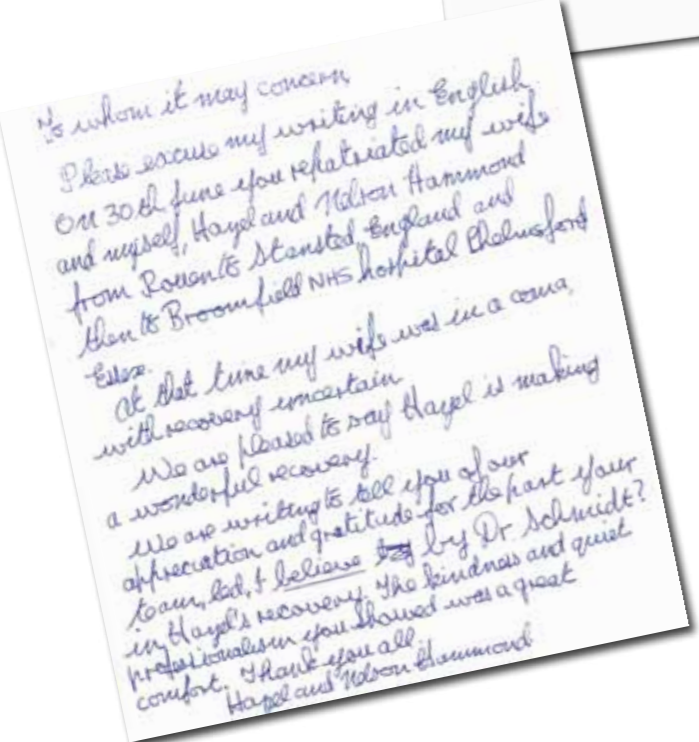 To whom it may concern,
Please excuse my writing in English.
On 30th June you repatriated my wife
and myself, Hazel and Nelson Hammond
from Rouen to Stansted, England and
then to Broomfield NHS hospital Chelmsford
Essex.
At that time my wife was in a coma,
with recovery uncertain.
We are pleased to say Hazel is making
a wonderful recovery.
We are writing to tell you of our
appreciation and gratitude for the part your
team, led, I believe by Dr Schmidt?
in Hazel's recovery. The kindness and quiet
professionalism you showed was a great
comfort. Thank you all.
Hazel and Nelson Hammond